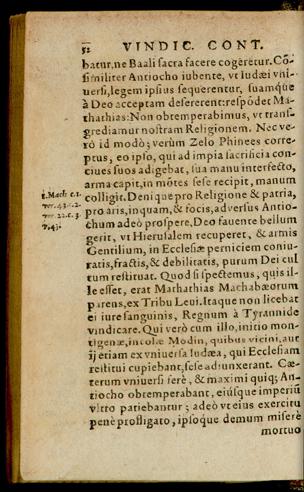 52 VINDIC. CONT.
batur, ne Baali sacra facere cogeretur. Cõ-
similiter Antiocho iubente, vt Iudæi vni-
uersi, legem ipsius sequerentur, suamque
à Deo acceptam desererent: respõdet Ma-
thathias: Non obtemperabimus, vt trans-
grediamur nostram Religionem. Nec ve-
rò id modò; verùm Zelo Phinees corre-
ptus, eo ipso, qui ad impia sacrificia con-
ciues suos adigebat, sua manu interfecto,
arma capit, in mõtes sese recipit, manum
colligit. Denique pro Religione & patria,
pro aris, inquam, & focis, aduersus Antio-
chum adeò prospere, Deo fauente bellum
gerit, vt Hierusalem recuperet, & armis
Gentilium, in Ecclesiæ perniciem coniu-
ratis, fractis, & debilitatis, purum Dei cul
tum restituat. Quod si spectemus, quis il-
le esset, erat Mathathias Machabæorum
parens, ex Tribu Leui. Itaque non licebat
ei iure sanguinis, Regnum à Tyrannide
vindicare. Qui verò cum illo, initio mon-
tigenæ, incolæ Modin, quibus vicini, aut
ij etiam ex vniuersa Iudæa, qui Ecclesiam
restitui cupiebant, sese adiunxerant. Cæ-
terum vniuersi ferè, & maximi quiq; An-
tiocho obtemperabant, eiúsque imperiũ
vltro patiebantur; adeò vt eius exercitu
penè profligato, ipsoque demum miserè
mortuo
1. Mach. c. 1.
ver. 43. c. 2.
ver. 22. c. 3.